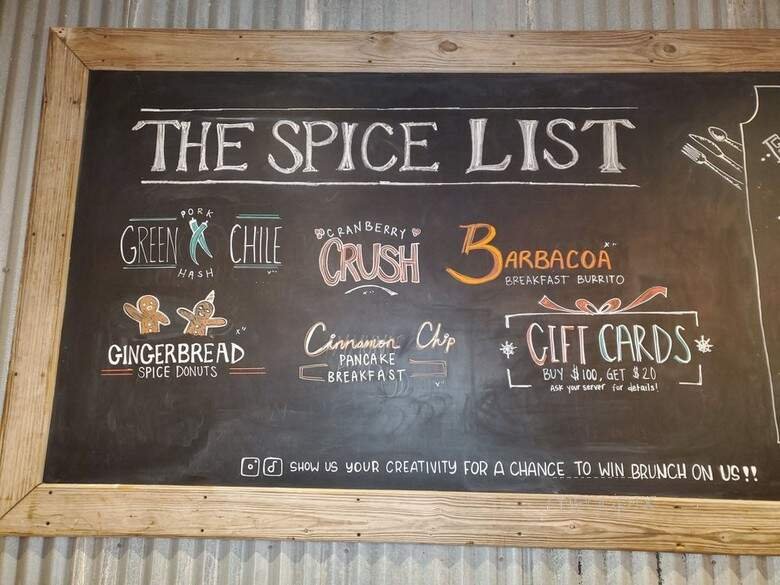 THE SPICE LIST
PORK
GREEN CHILE
HASH
CRANBERRY
CRUSH
BARBACOA
BREAKFAST BURRITO
GINGERBREAD
SPICE DONUTS
Cinnamon Chip
PANCAKE
BREAKFAST
GIFT CARDS
BUY $100, GET $20
ASK your server for details!
SHOW US YOUR CREATIVITY FOR A CHANCE TO WIN BRUNCH ON US!!